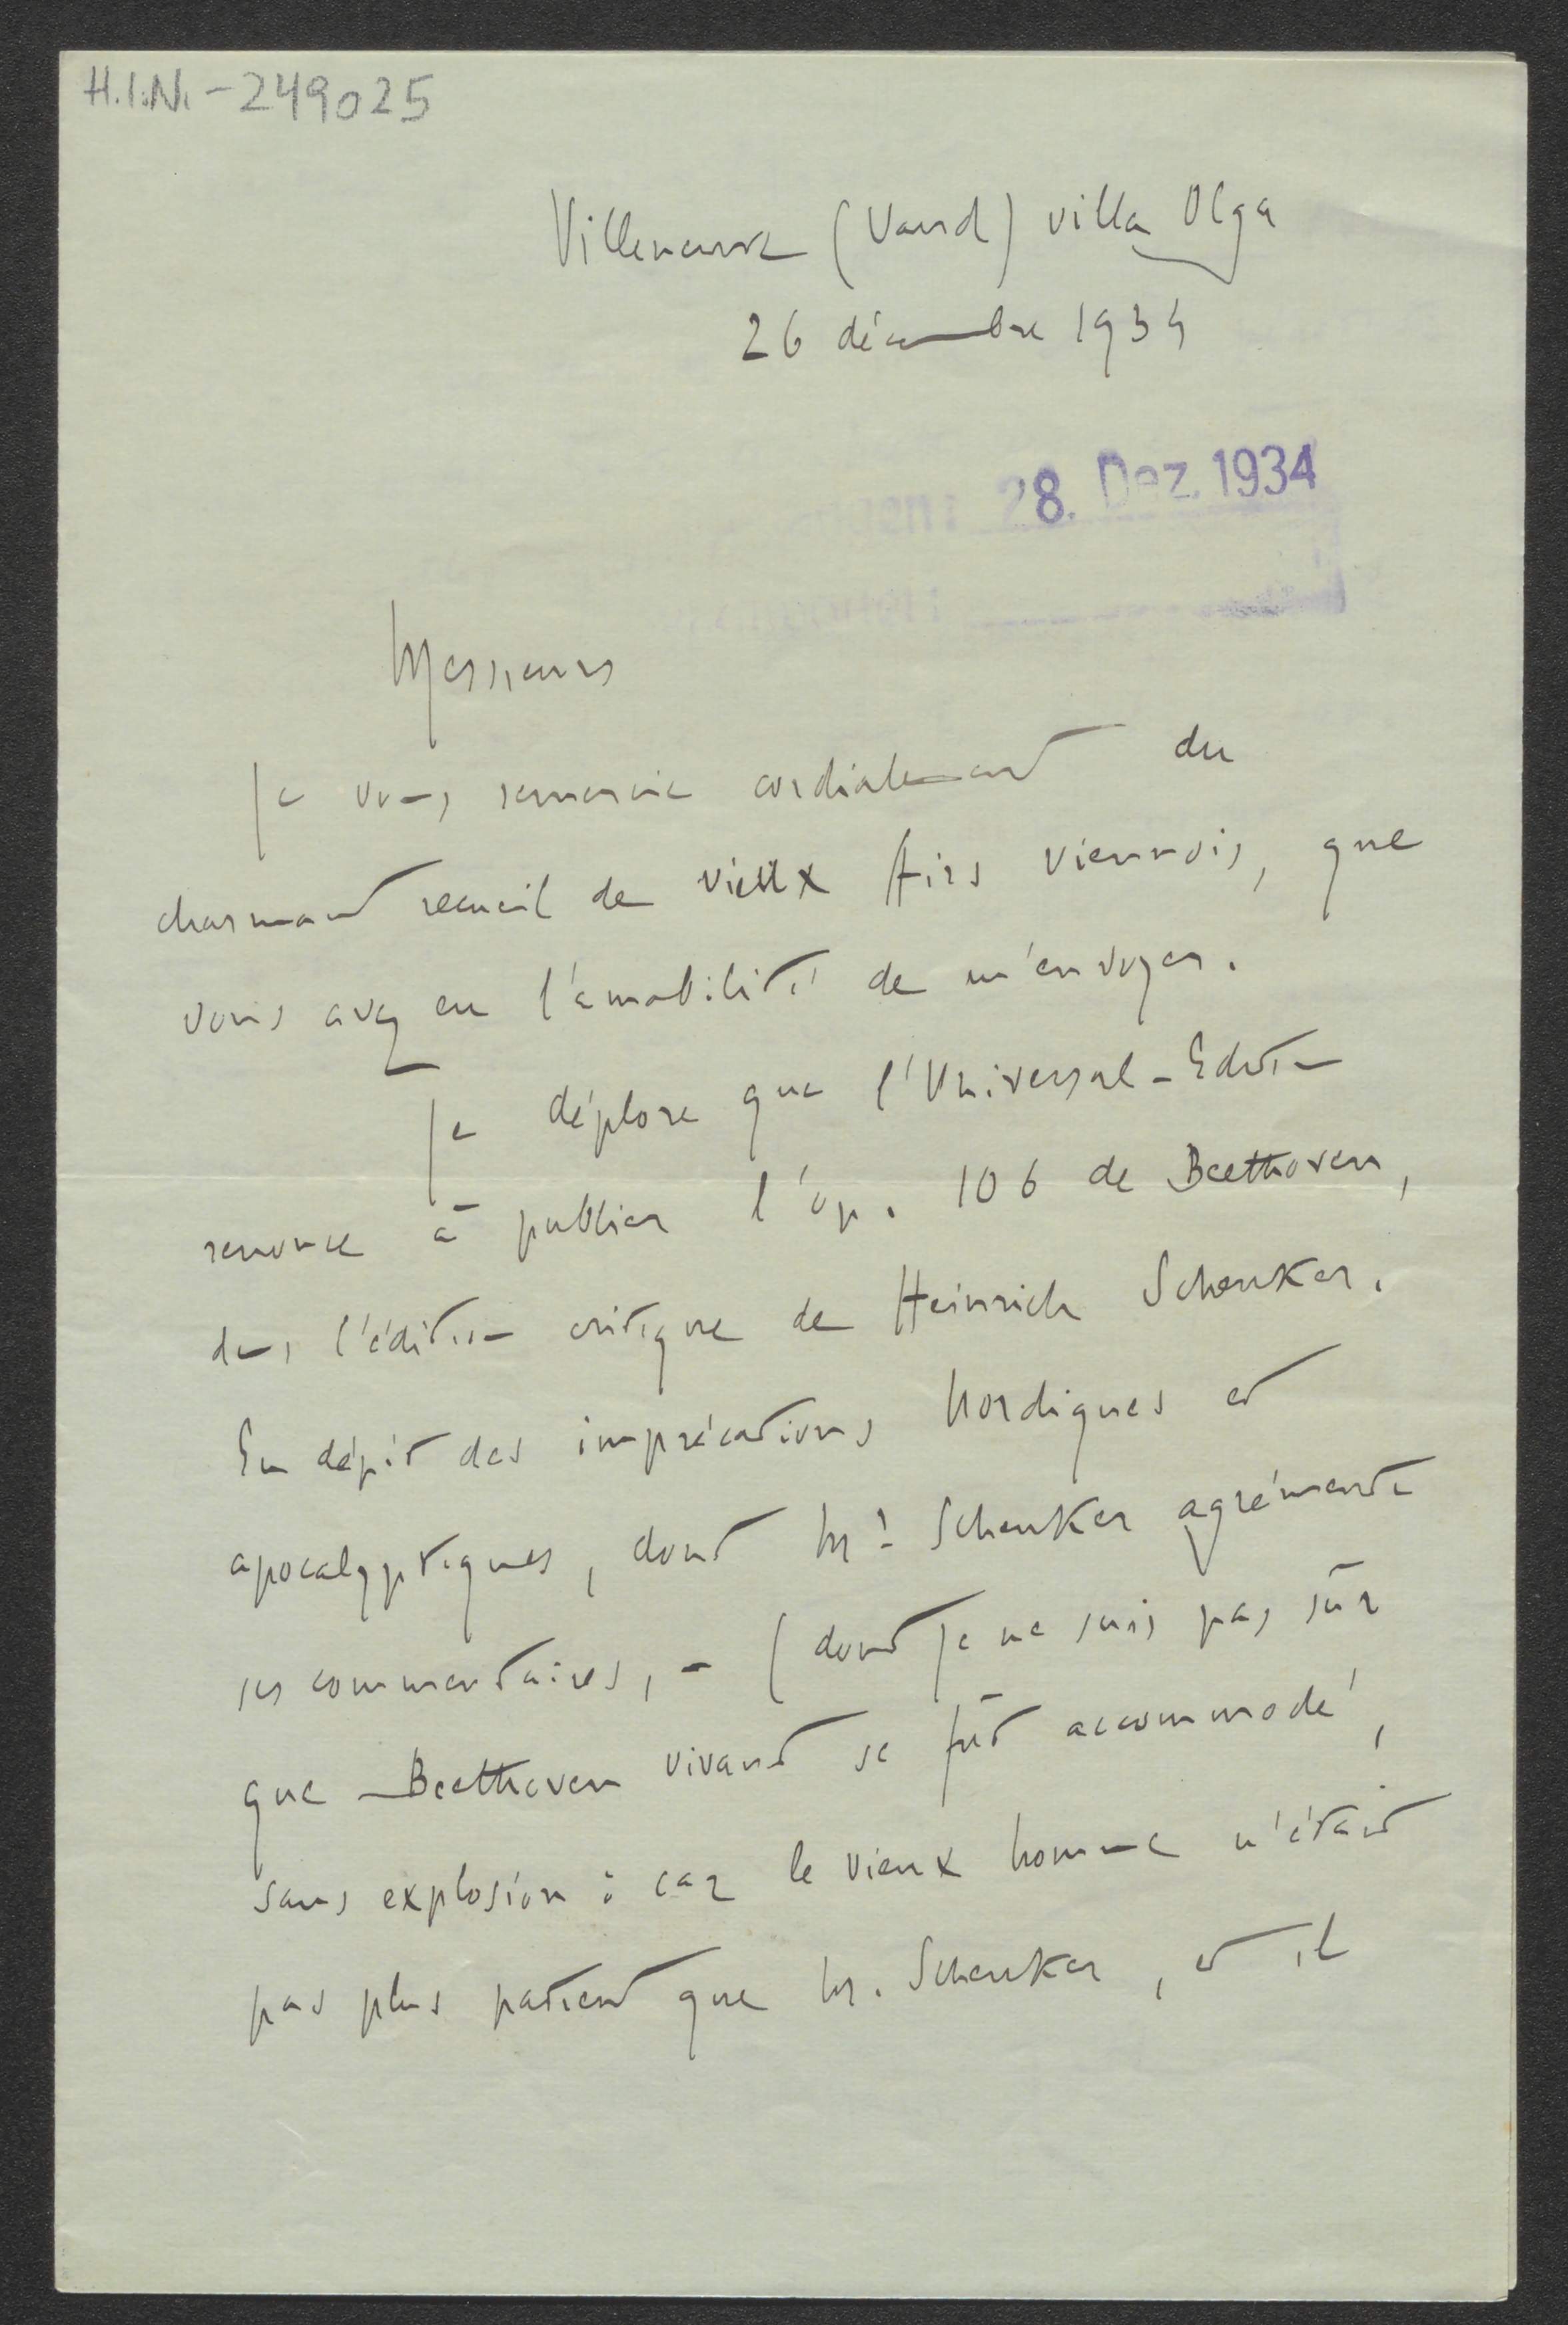 H.I.N.-249025
Villeneuve (Vaud) villa Olga
26 décembre 1934
28. Dez. 1934
Messieurs
Je vous remercie cordialement du
charmant recueil de vieux Airs viennois, que
vous avez eu l'amabilité de m'envoyer.
Je déplore que l'Universal-Edition
renonce à publier l'op. 106 de Beethoven,
dans l'édition critique de Heinrich Schenker.
En dépit des imprécations Nordiques et
apocalyptiques, dont Mr Schenker agrémente
ses commentaires, - (dont je ne suis pas sûr
que Beethoven vivant se fût accommodé,
sans explosion : car le vieux homme n'était
pas plus patient que M. Schenker, et il